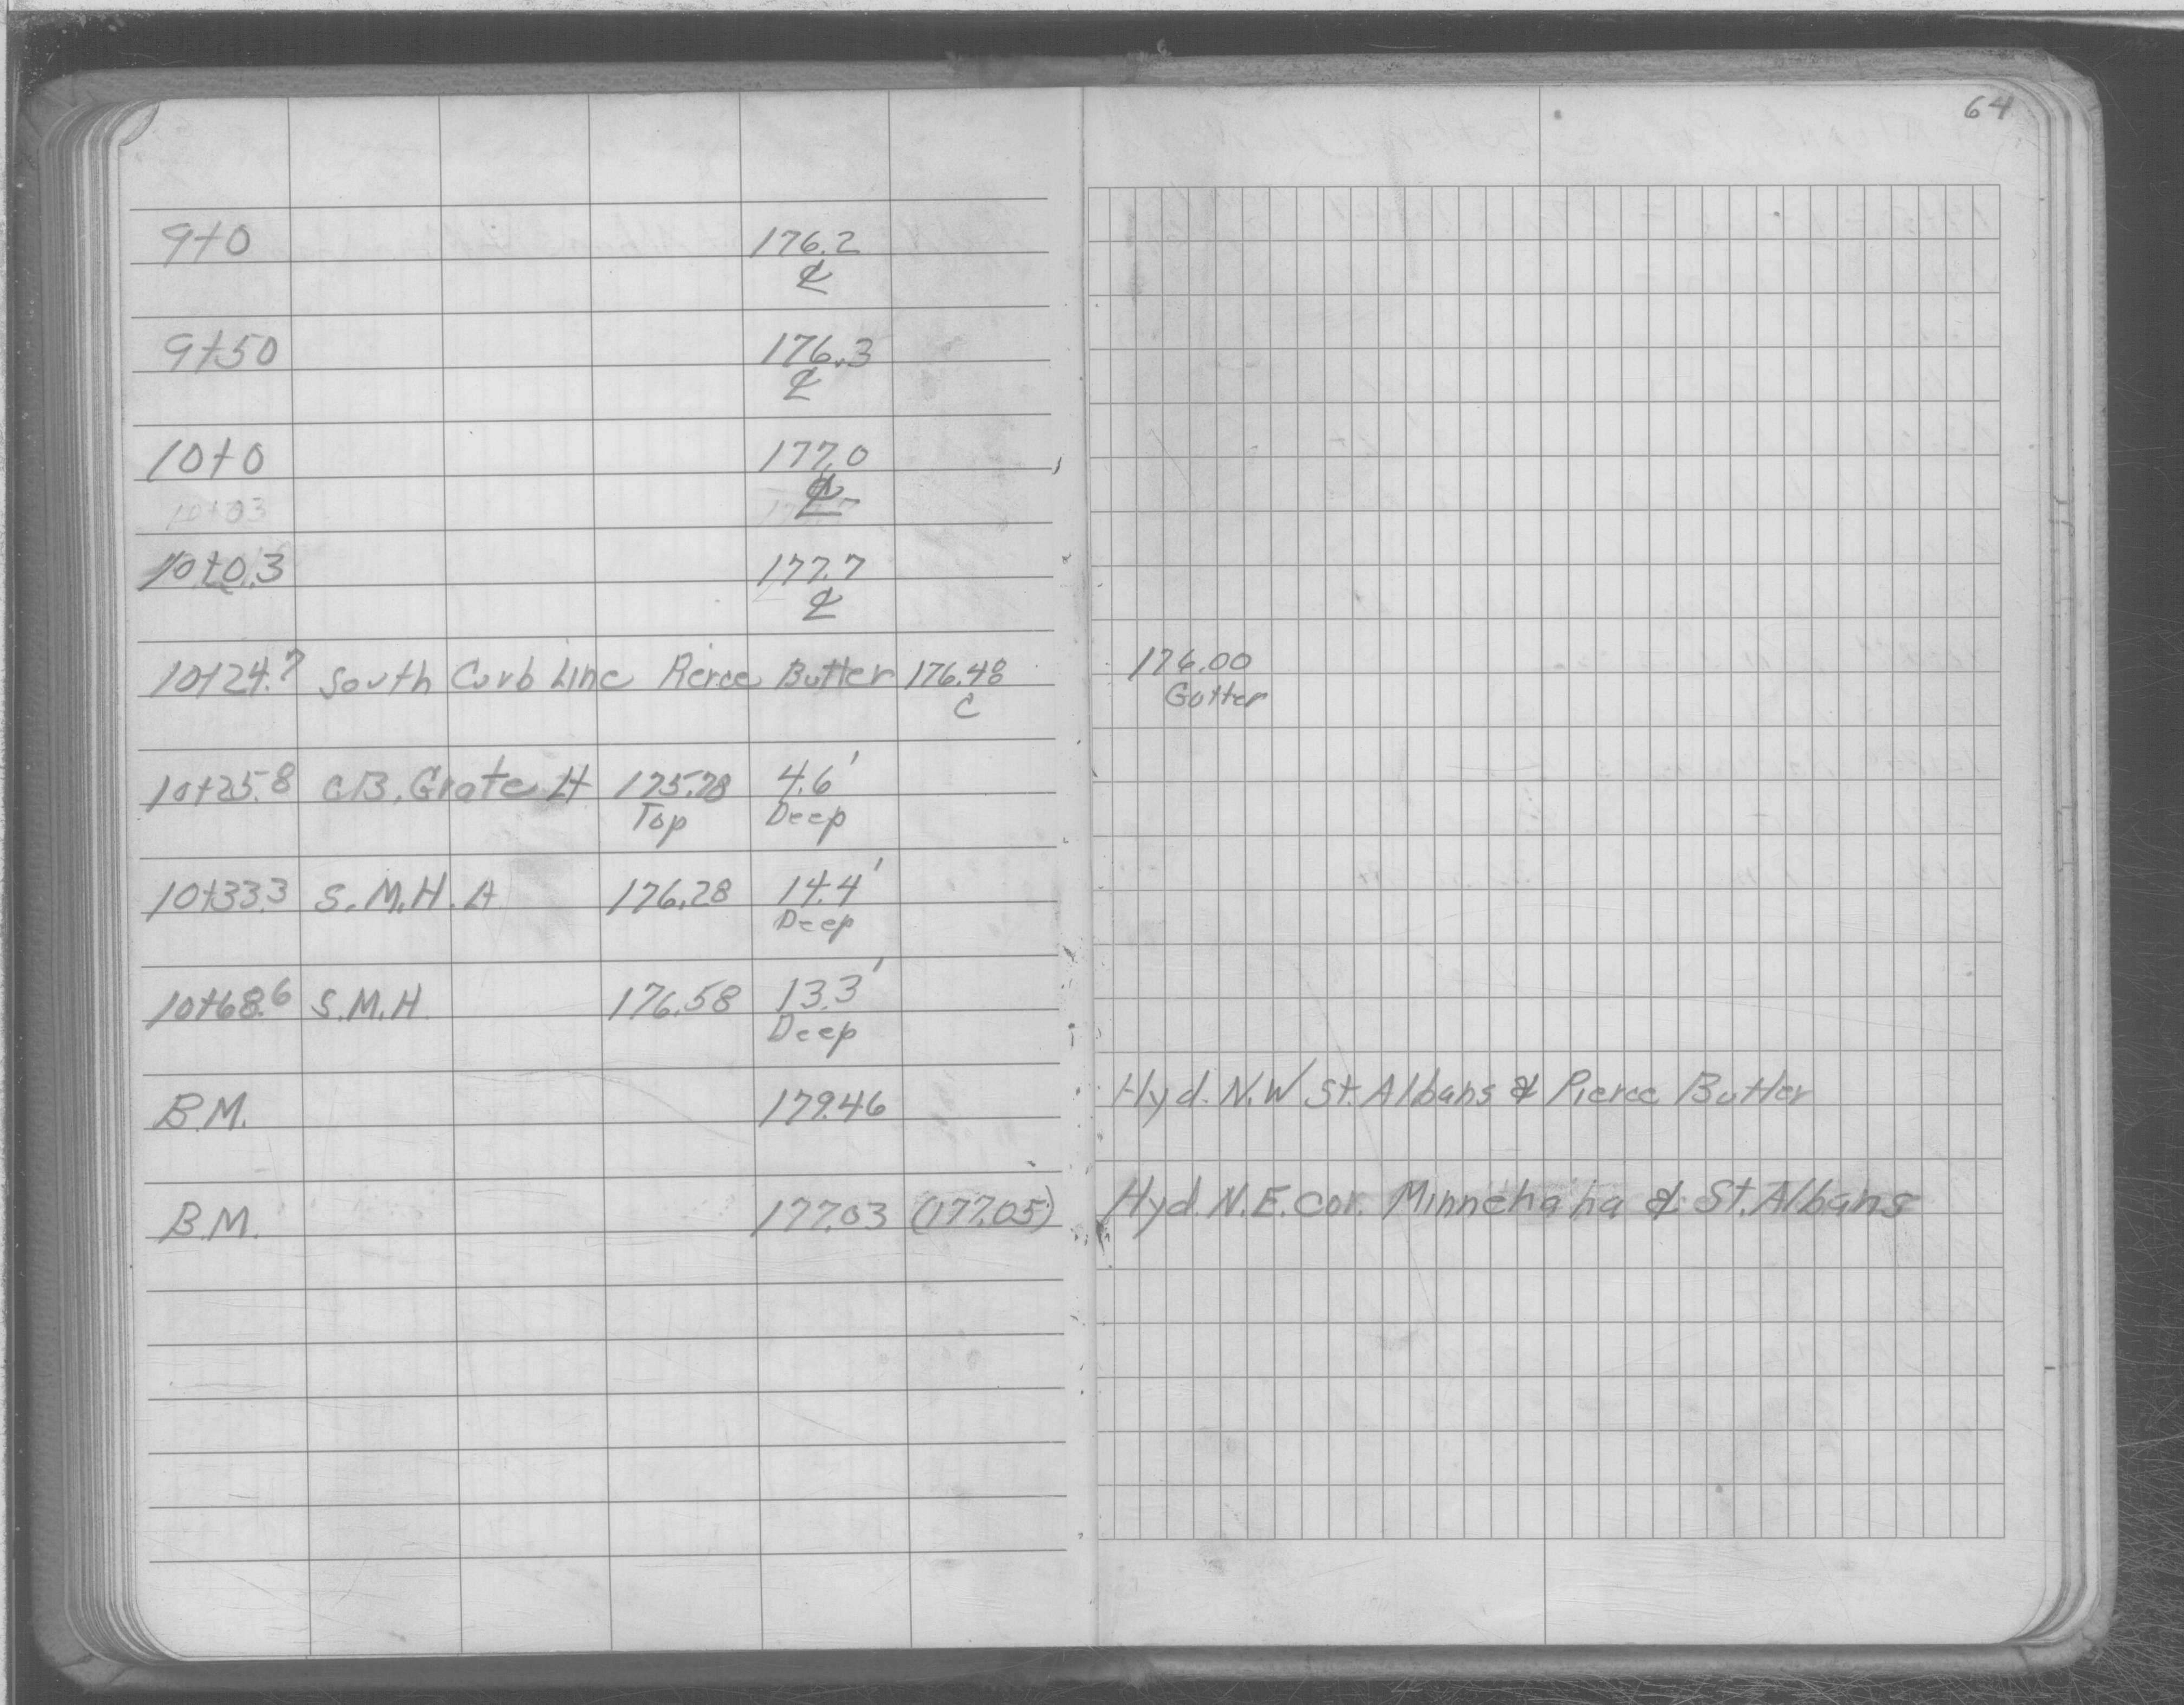 64
9+0 176.2
℄
9+50 176.3
℄
10+0 177.0
℄
10+03
10+0.3 177.7
℄
10+24.7 South Curb Line Pierce Butler 176.48 176.00
C Gutter
10+25.8 C.B. Grate Lt 175.78 4.6'
Top Deep
10+33.3 S.M.H. 176.28 14.4'
Deep
10+68.6 S.M.H. 176.58 13.3'
Deep
B.M. 179.46 Hyd. N.W St. Albans & Pierce Butler
B.M. 177.03 (177.05) Hyd. N.E. cor. Minnehaha & St. Albans